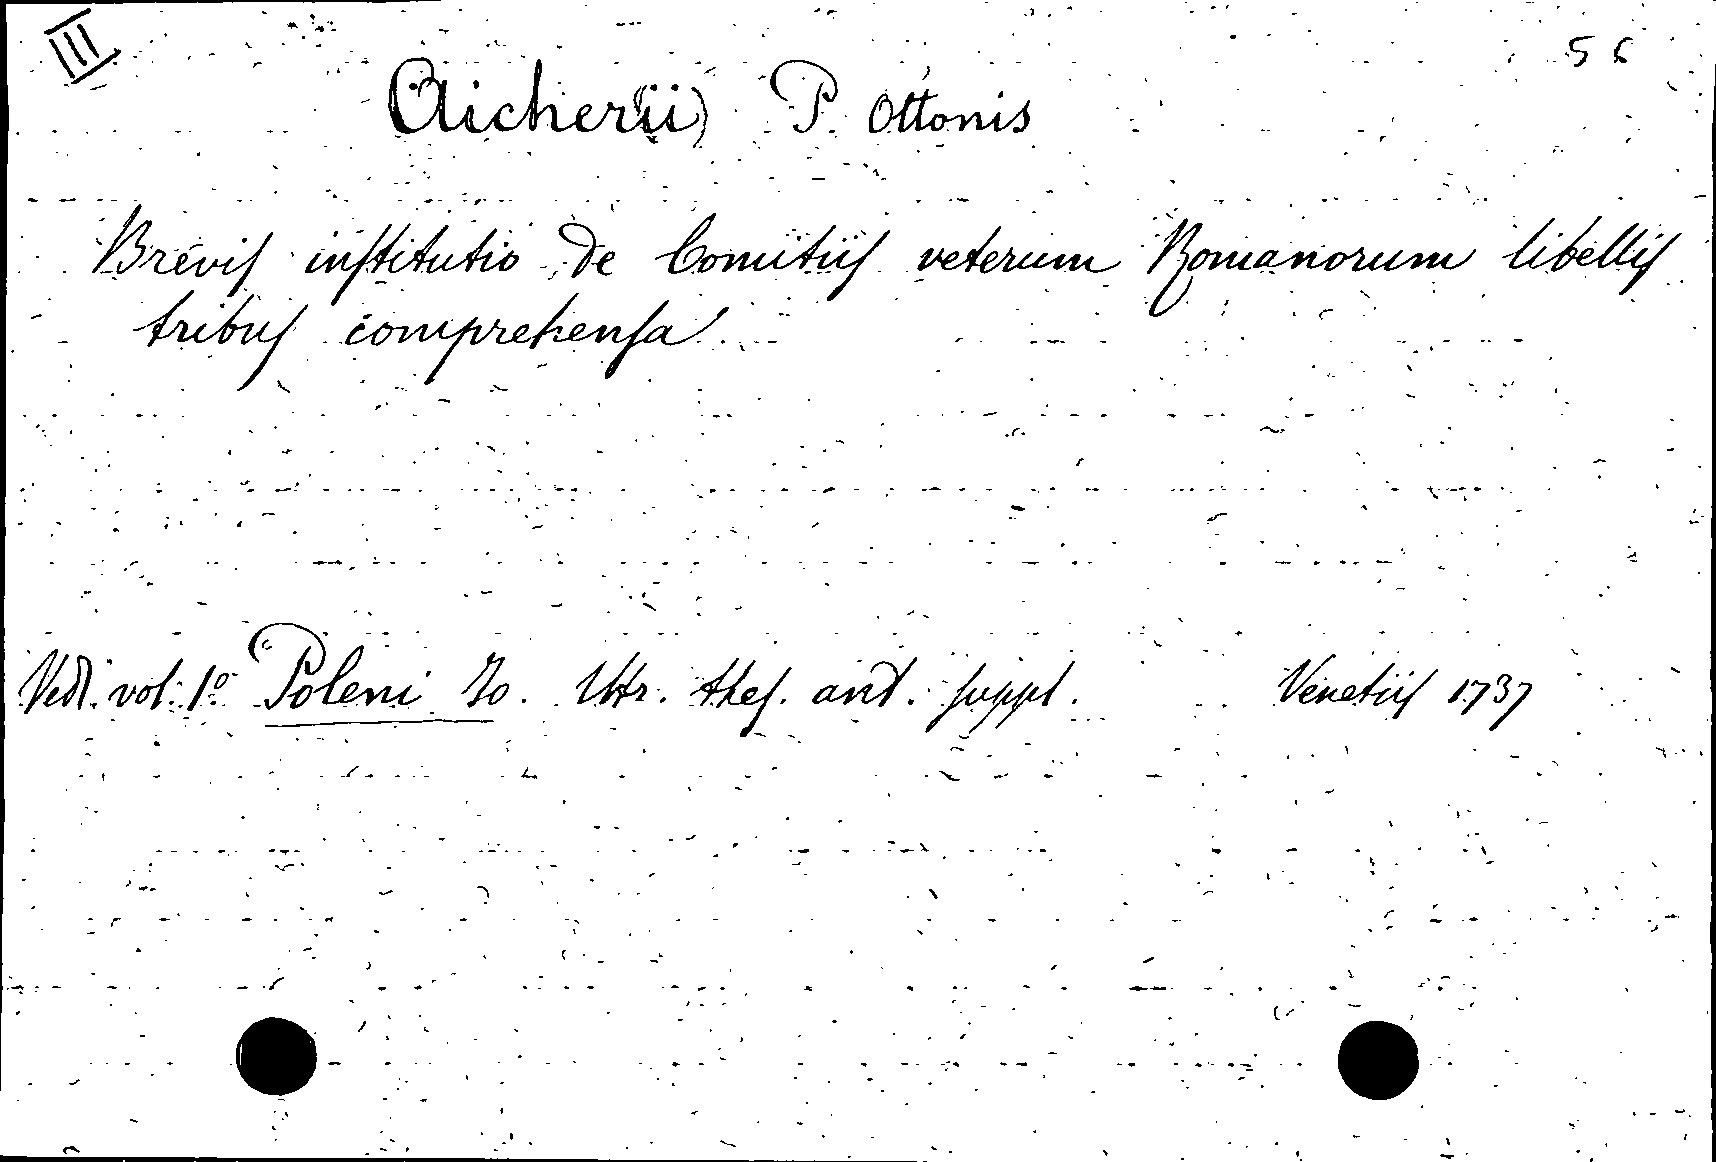 III
56
Aicher(ii) P. Ottonis
Brevis institutio de Comitiis veterum Romanorum libellis
tribus comprehensa.
Ved. vol. 1º Poleni Jo. Utr. thes. ant. suppl. Venetiis 1737